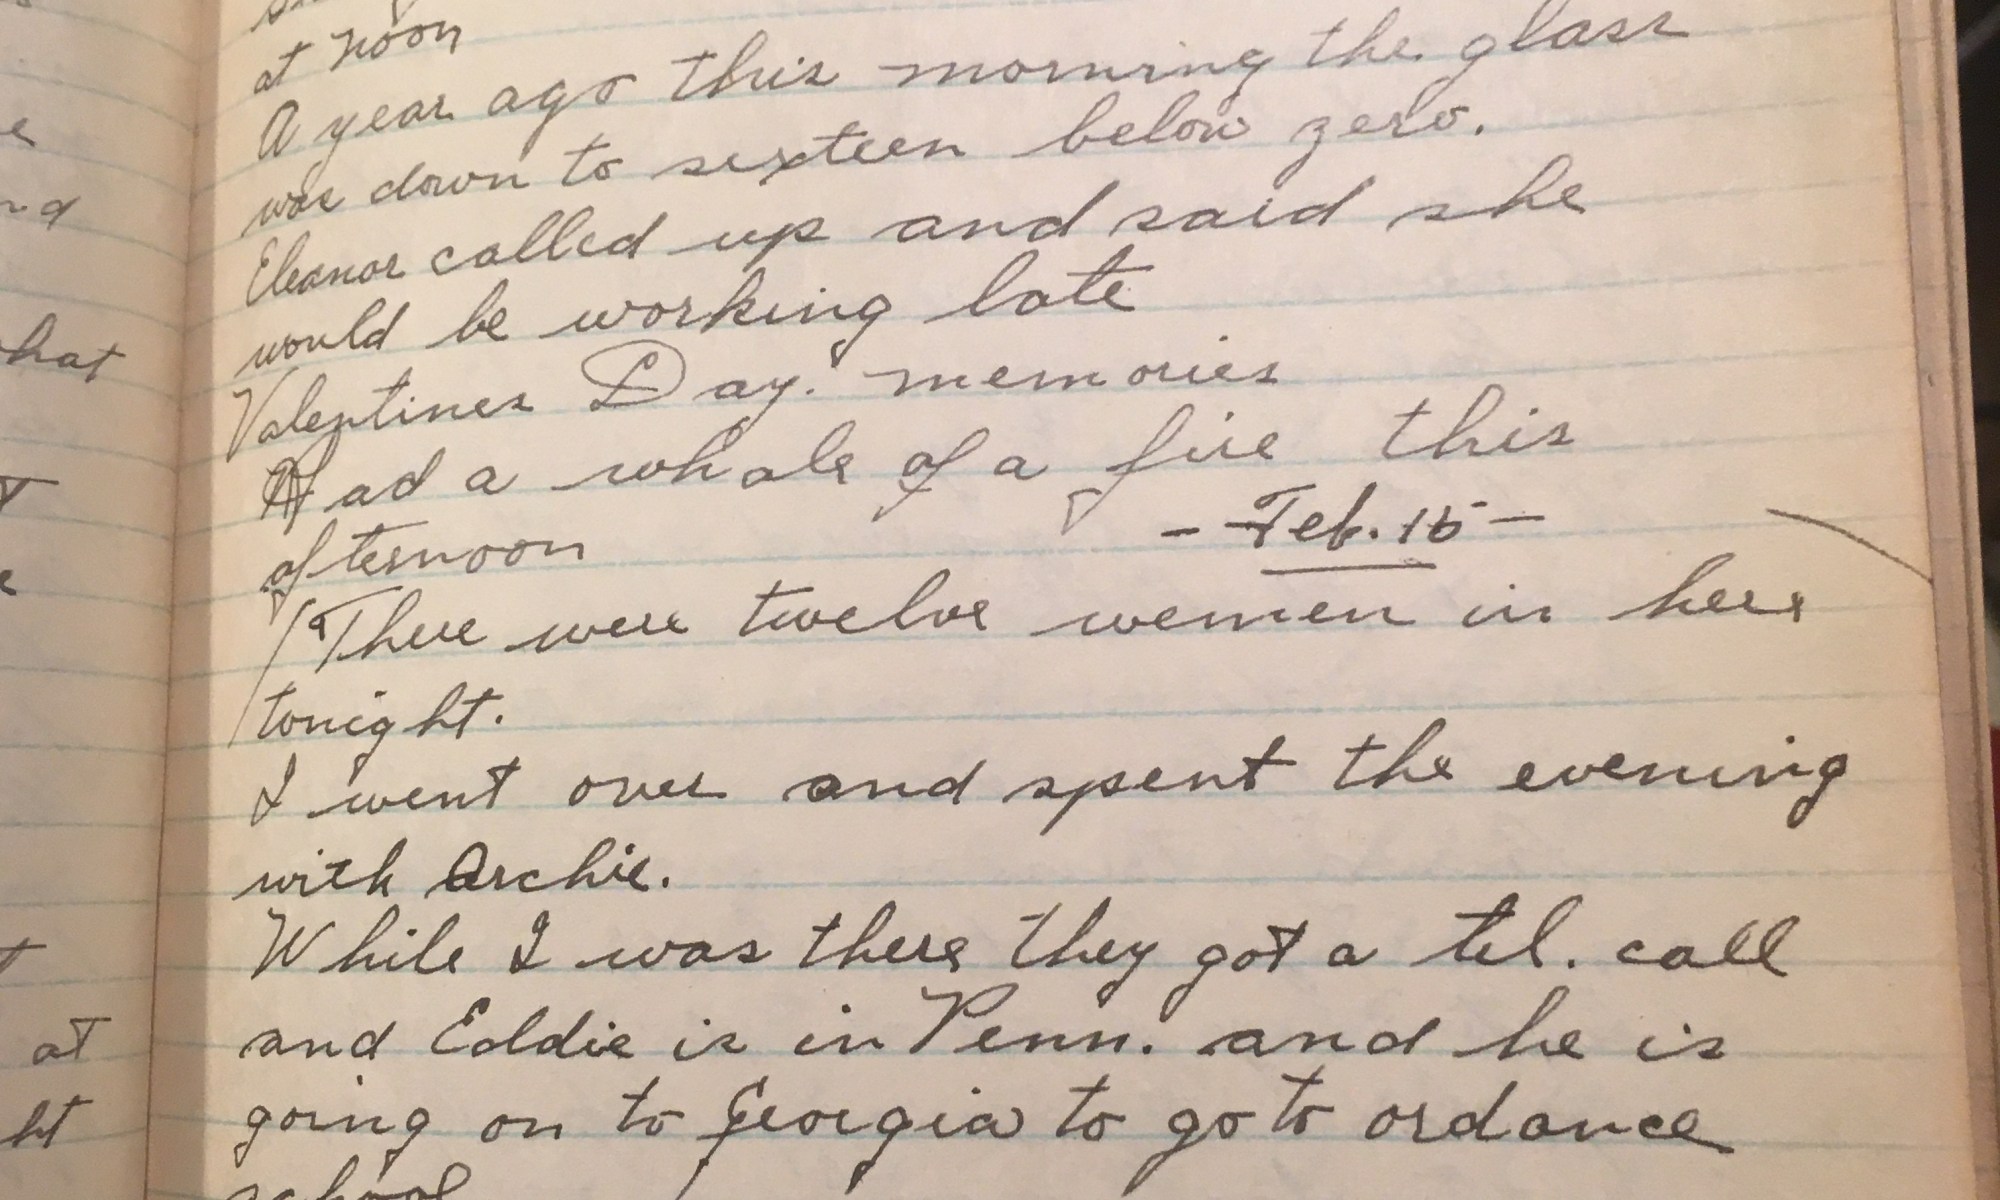 at noon
A year ago this morning the glass
was down to sixteen below zero.
Eleanor called up and said she
would be working late
Valentines Day. memories
Had a whale of a fire this
afternoon
- Feb. 15 -
There were twelve women in here
tonight.
I went over and spent the evening
with Archie.
While I was there they got a tel. call
and Eddie is in Penn. and he is
going on to Georgia to go to ordance
school
hat
at
ht